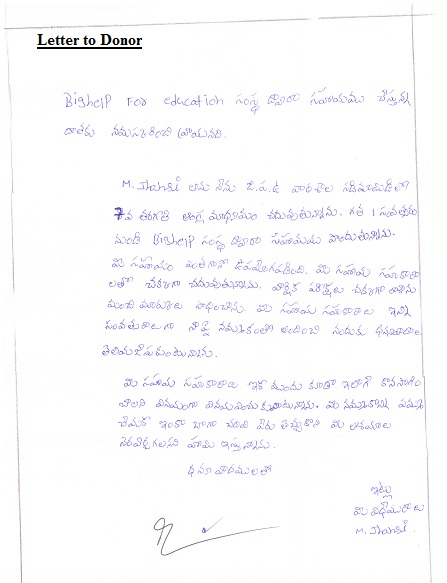 Letter to Donor
BigheIP For education సంస్థ ద్వారా సహాయము చేస్తున్న
దాతకు నమస్కరించి వ్రాయునది.
M. అను నేను జి.ప.ఉ పాఠశాల నడిమూడిలో
7వ తరగతి ఆంగ్ల మాధ్యమం చదువుతున్నాను. గత 1 సంవత్సరం
నుండి BigheIP సంస్థ ద్వారా సహాయము పొందుతున్నాను.
మీ సహాయం ఎంతగానో ఉపయోగపడింది. మీ సహాయ సహకారా
లతో చక్కగా చదువుతున్నాను. వార్షిక పరీక్షలు చక్కగా రాసి
మంచి మార్కులు సాధించాను. మీ సహాయ సహకారాలు ఇన్ని
సంవత్సరాలుగా నాపై నమ్మకంతో అందించి నందుకు ధన్యవాదాలు
తెలియజేసుకుంటున్నాను.
మీ సహాయ సహకారాలు ఇక ముందు కూడా ఇలాగే కొనసాగిం
చాలని వినయంగా విన్నవించుకుంటున్నాను. మీ నమ్మకాన్ని వమ్ము
చేయక ఇంకా బాగా చదివి పేరు తెచ్చుకొని మీ ఆశయాలు
నెరవేర్చగలనని హామి ఇస్తున్నాను.
ధన్యవాదములతో
ఇట్లు
మీ విధేయురాలు
M.